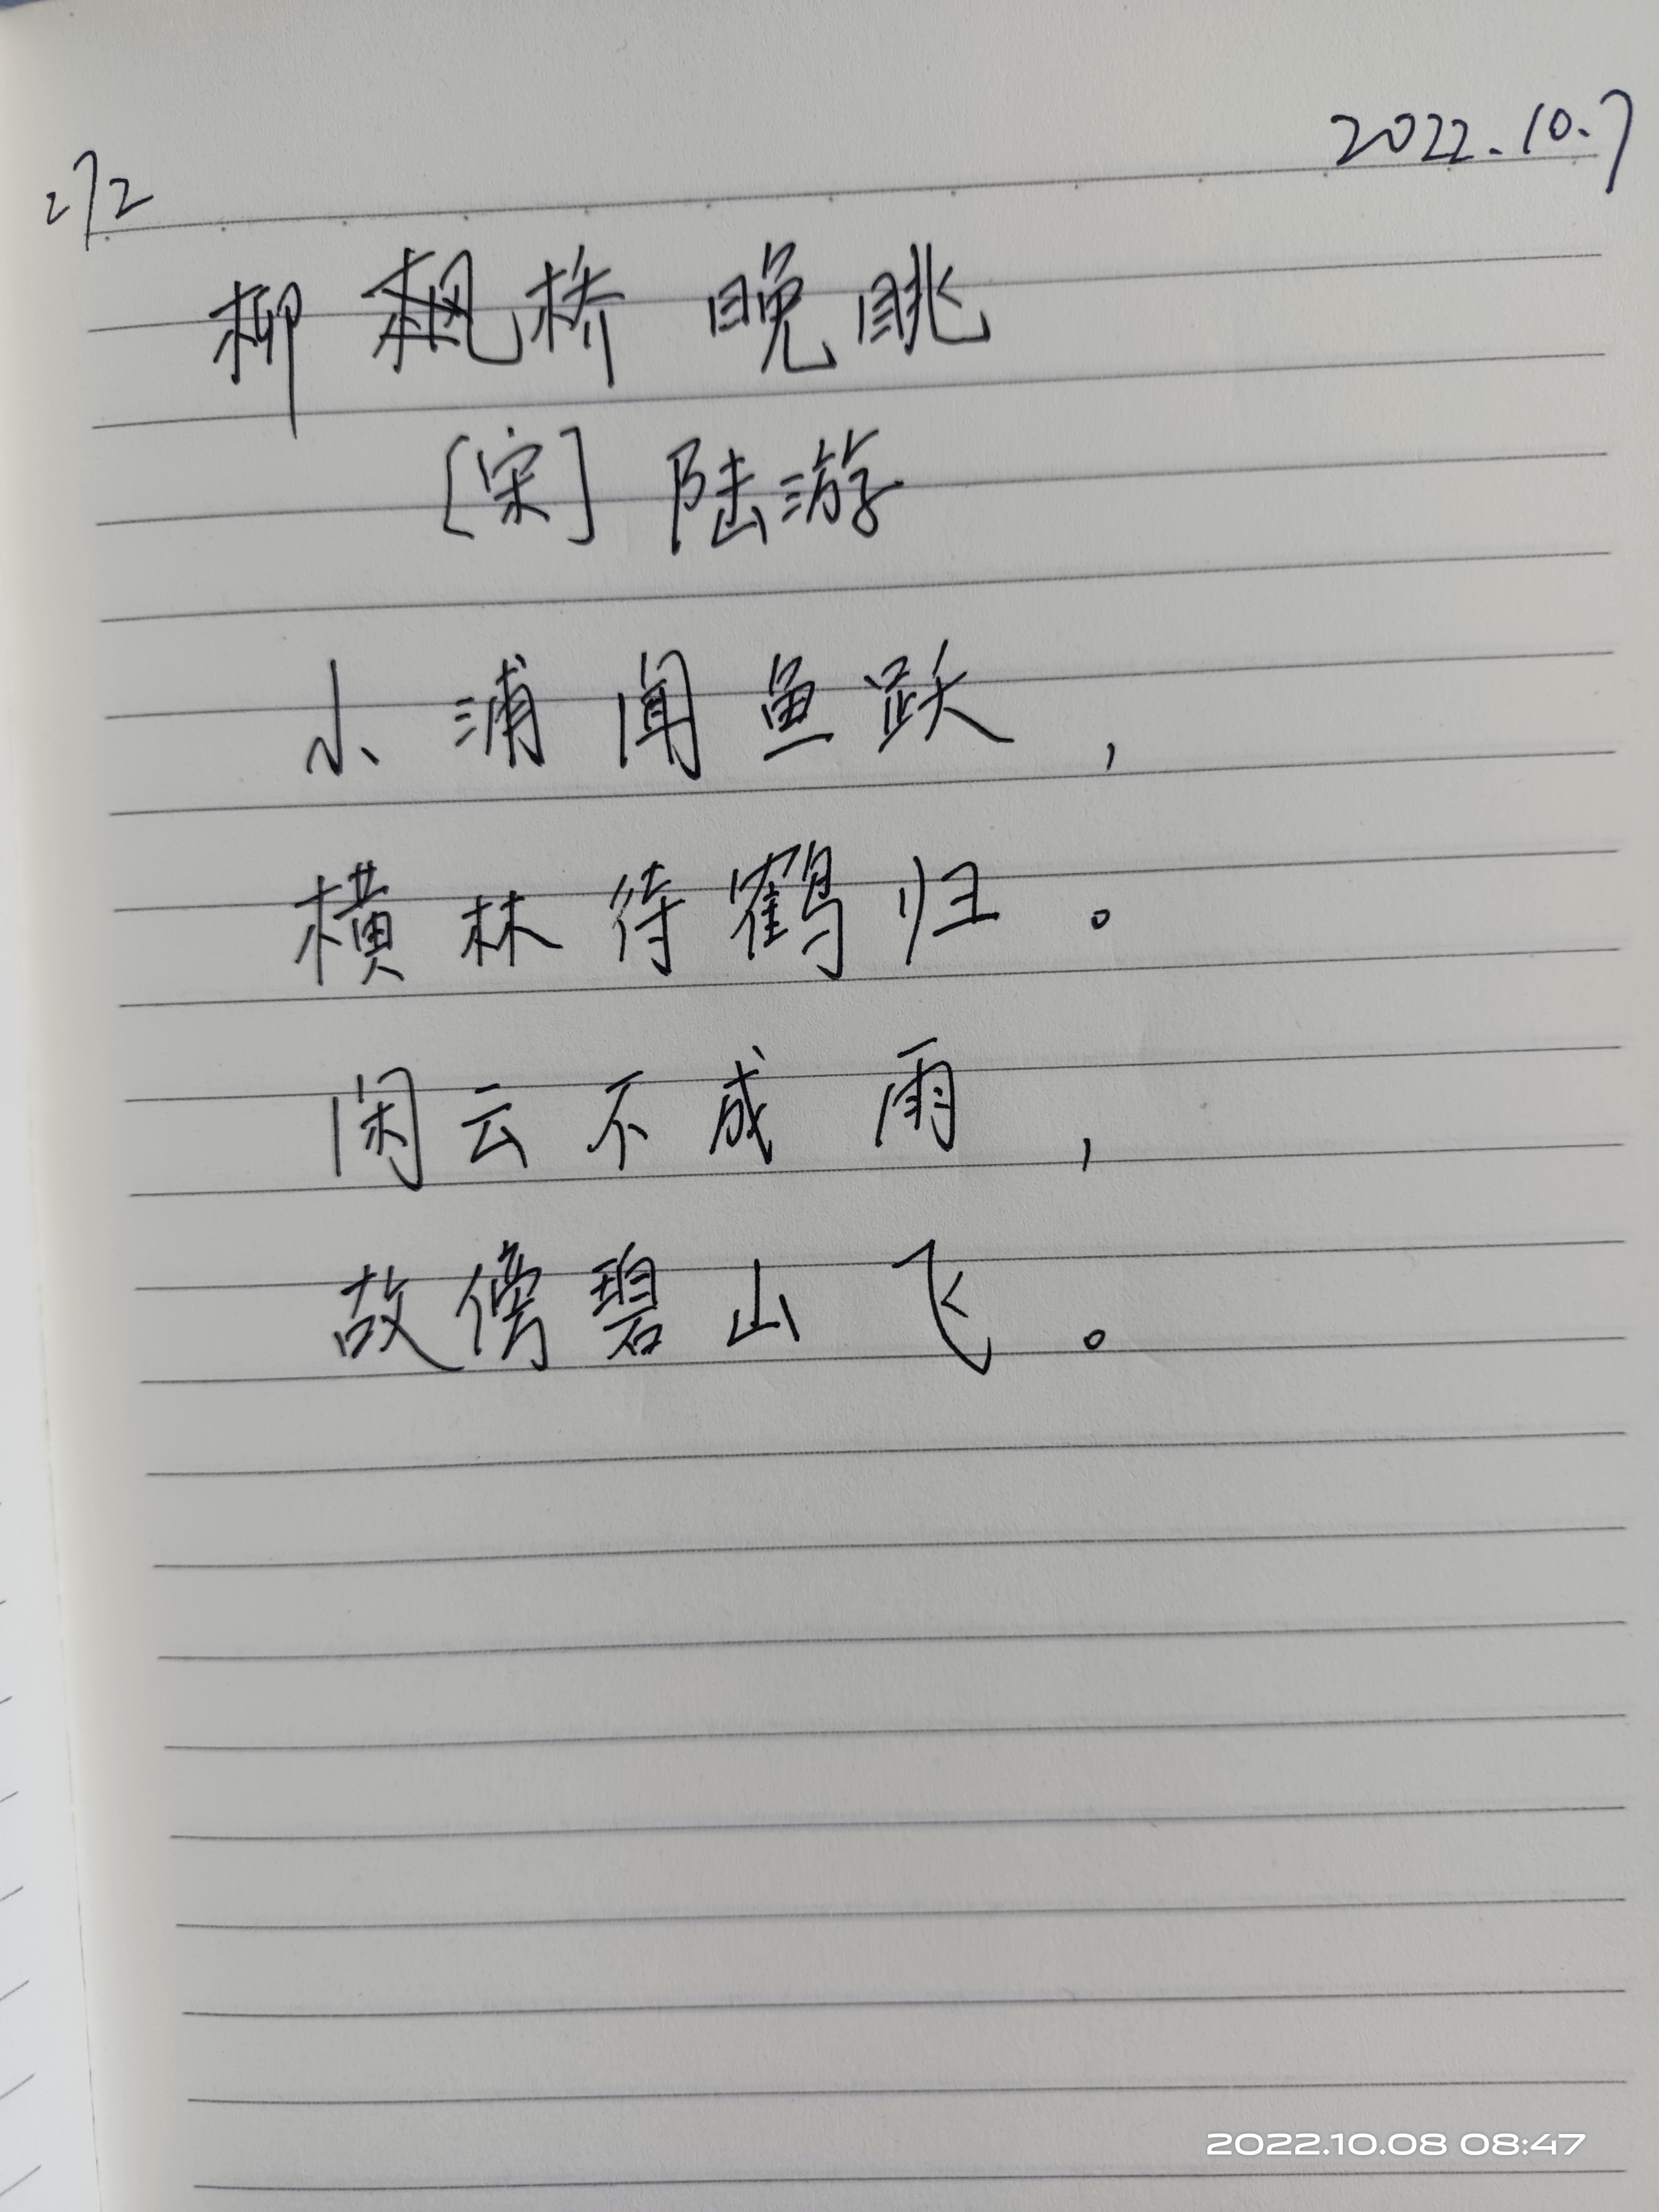 2022.10.7
272
柳 桥 晚眺
[宋] 陆游
小浦闻鱼跃,
横林待鹤归。
闲云不成雨,
故傍碧山飞。
2022.10.08 08:47